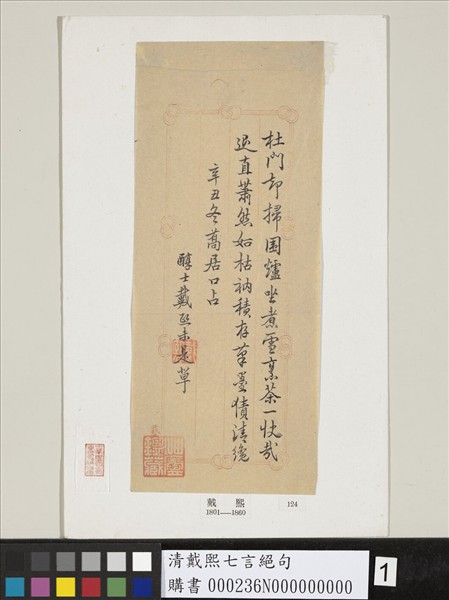 杜門却掃圍爐坐煮雪烹茶一快哉
退直蕭然如枯衲積存筆墨債清纔
辛丑冬蒿居口占
醇士戴熙未是草
戴 熙
1801—1860
124
清戴熙七言絕句
購書 000236N000000000
1